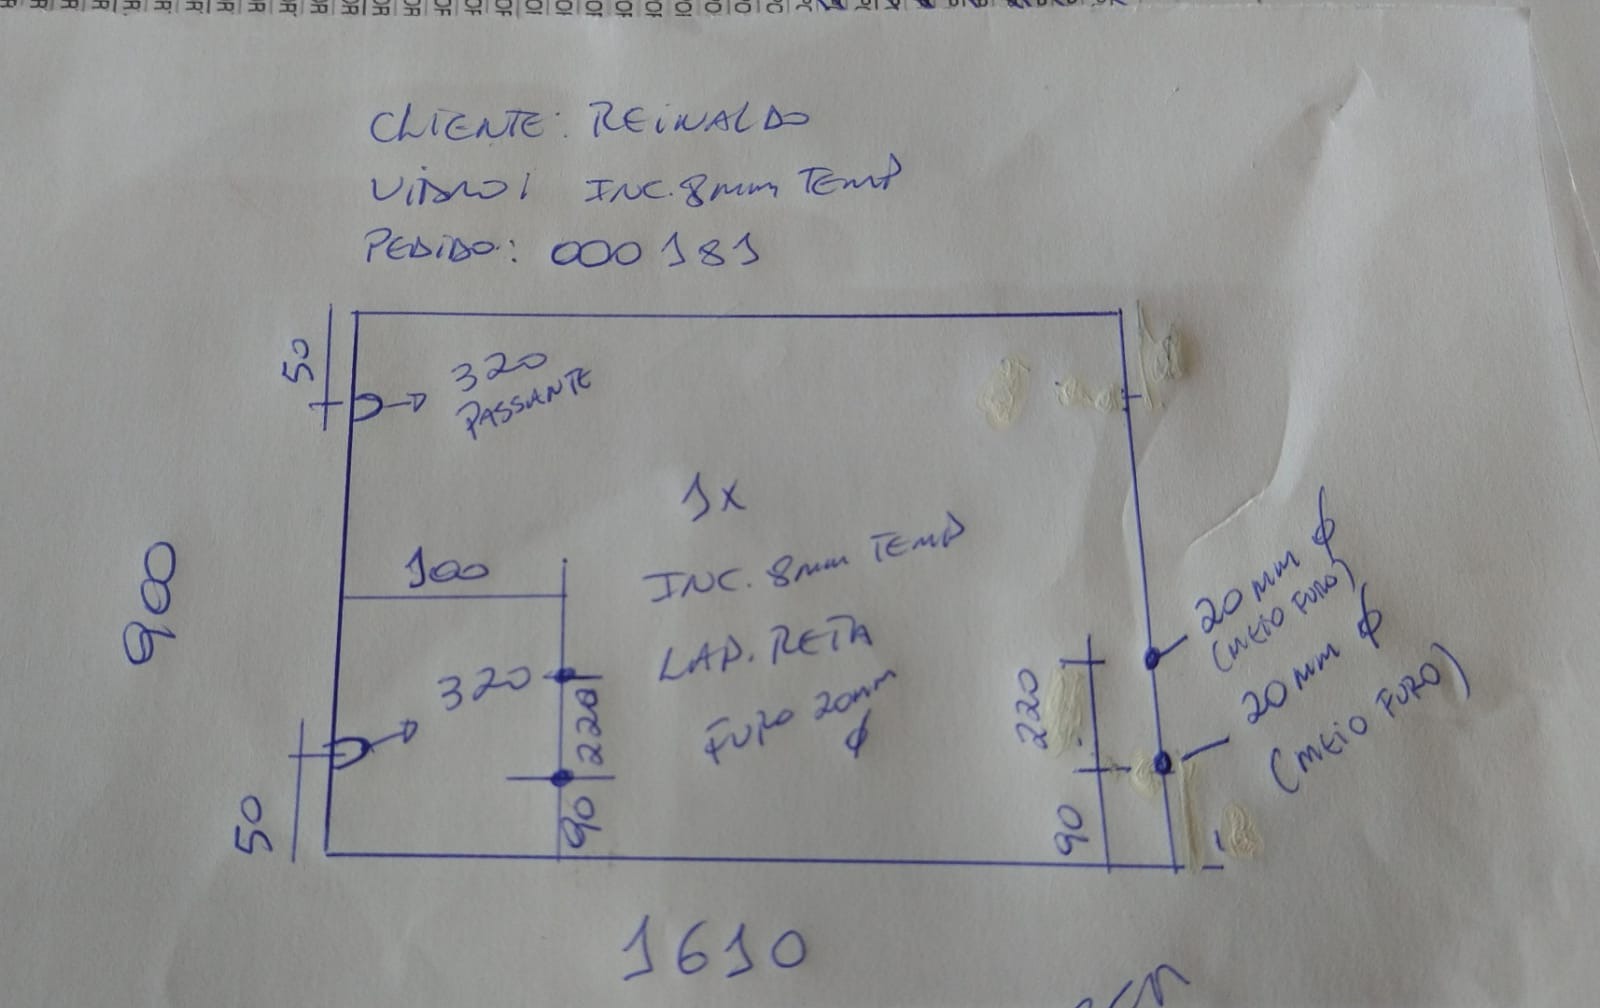 CLIENTE: REINALDO
VIDRO: INC. 8mm TEMP
PEDIDO: 000181
50
320
PASSANTE
1x
INC. 8mm TEMP
LAP. RETA
FURO 20mm
ϕ
900
100
320
220
90
50
220
90
20 mm ϕ
(MEIO FURO)
20 mm ϕ
(MEIO FURO)
1610